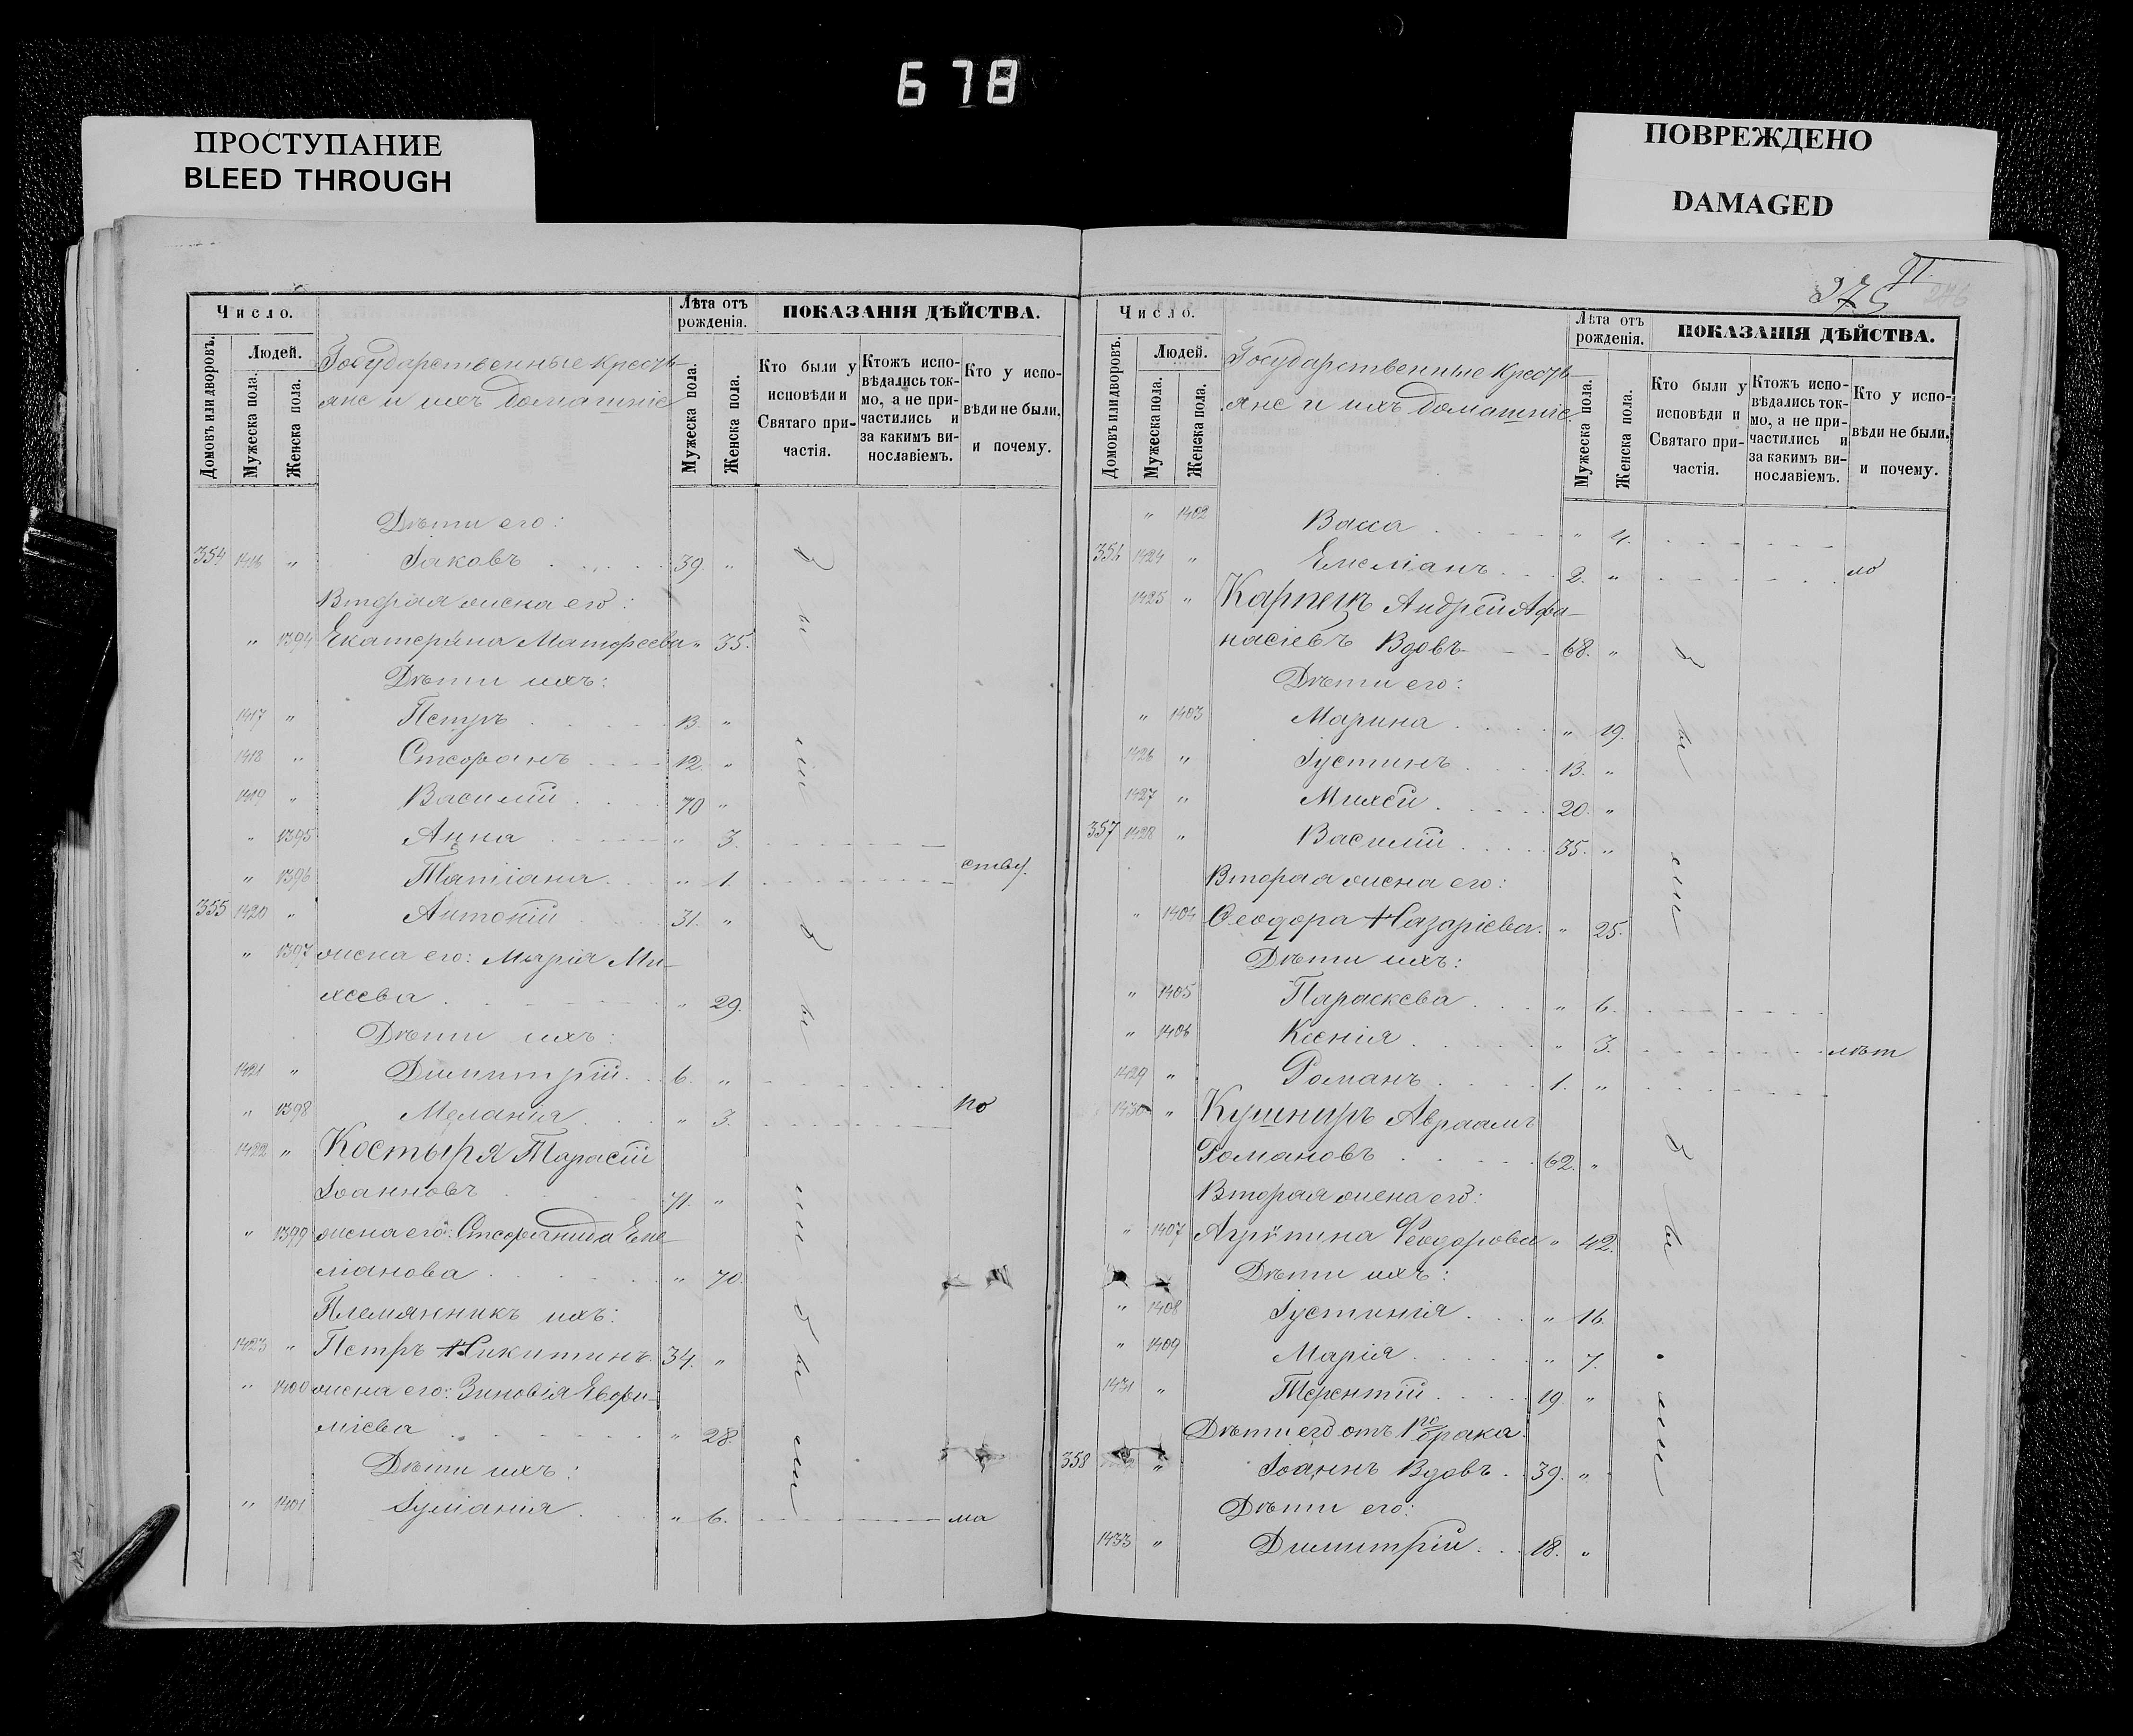 678
ПРОСТУПАНИЕ
BLEED THROUGH
ПОВРЕЖДЕНО
DAMAGED
Число.
Домовъ или дворовъ.
Людей.
Мужеска пола.
Женска пола.
Государственные кресть-
яне и ихъ домашніе
Лѣта отъ рожденія.
Мужеска пола.
Женска пола.
ПОКАЗАНІЯ ДѢЙСТВА.
Кто были у исповѣди и Святаго при-частія.
Ктожъ испо-вѣдались ток-мо, а не при-частились и за какимъ ви-нославіемъ.
Кто у испо-вѣди не были. и почему.
Дѣти его:
354 1416 " Іаковъ 39. "
Вторая жена его:
" 1394 Екатерина Матфеева " 35.
Дѣти ихъ:
1417 " Петръ 13. "
1418 " Стефанъ 12. "
1419 " Василій 70 "
" 1395 Анна " 3.
" 1396 Татіана " 1. ству.
355 1420 " Антоній 31. "
" 1397 жена его: Марія Ми-
хеева " 29.
Дѣти ихъ:
1421 " Димитрій 6. "
" 1398 Меланія " 3. по
1422 " Костыря Тарасій
Іоанновъ 71. "
" 1399 жена его: Стефанида Еме-
ліанова " 70.
Племянникъ ихъ:
1423 " Петръ Никитинъ 34. "
" 1400 жена его: Зиновія Евфи-
міева " 28.
Дѣти ихъ:
" 1401 Іуліанія " 6. ма
были
были
были
375
91.
276
Число.
Домовъ или дворовъ.
Людей.
Мужеска пола.
Женска пола.
Государственные кресть-
яне и ихъ домашніе
Лѣта отъ рожденія.
Мужеска пола.
Женска пола.
ПОКАЗАНІЯ ДѢЙСТВА.
Кто были у исповѣди и Святаго при-частія.
Ктожъ испо-вѣдались ток-мо, а не при-частились и за какимъ ви-нославіемъ.
Кто у испо-вѣди не были. и почему.
" 1402 Васса " 4.
356 1424 " Емеліанъ 2. " ло
1425 " Карпецъ Андрей Афа-
насіевъ Вдовъ 68. "
Дѣти его:
" 1403 Марина " 19.
1426 " Іустинъ 13. "
1427 " Михей 20. "
357 1428 " Василій 35. "
Вторая жена его:
" 1404 Ѳеодора Назаріева " 25.
Дѣти ихъ:
" 1405 Параскева " 6.
" 1406 Ксенія " 3. лѣт
1429 " Романъ 1. "
1430 " Кушниръ Авраамъ
Романовъ 62. "
Вторая жена его:
" 1407 Агрипина Ѳеодорова " 42.
Дѣти ихъ:
" 1408 Іустинія " 16.
" 1409 Марія " 7.
1431 " Терентій 19 "
Дѣти его отъ 1го брака:
358 " Іоаннъ Вдовъ 39. "
Дѣти его:
1433 " Димитрій 18. "
были
были